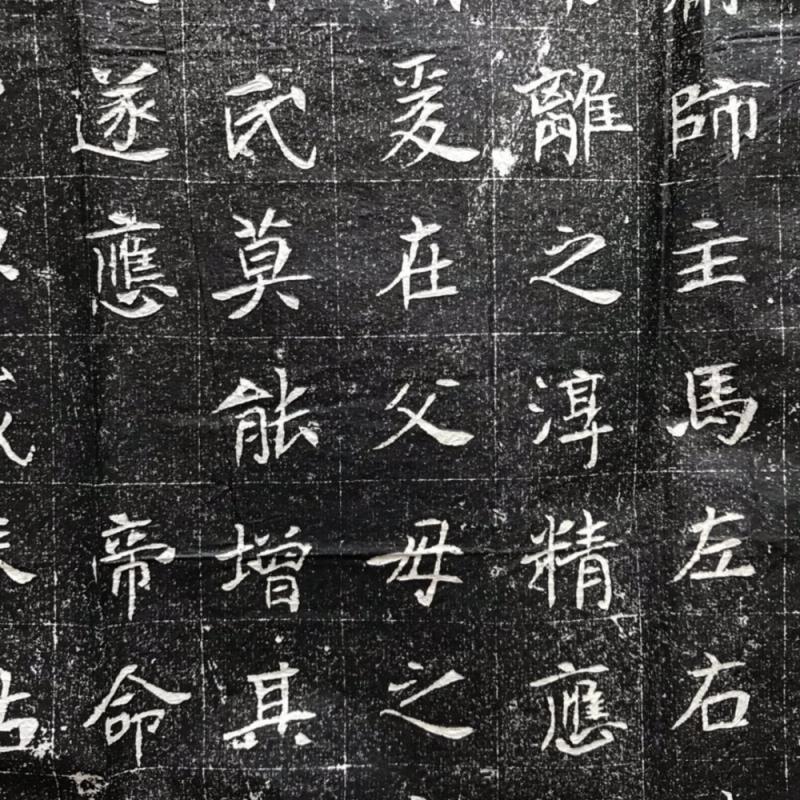 師主馬左右
離之淳精應
爰在父母之
氏莫能增其
遂應帝命